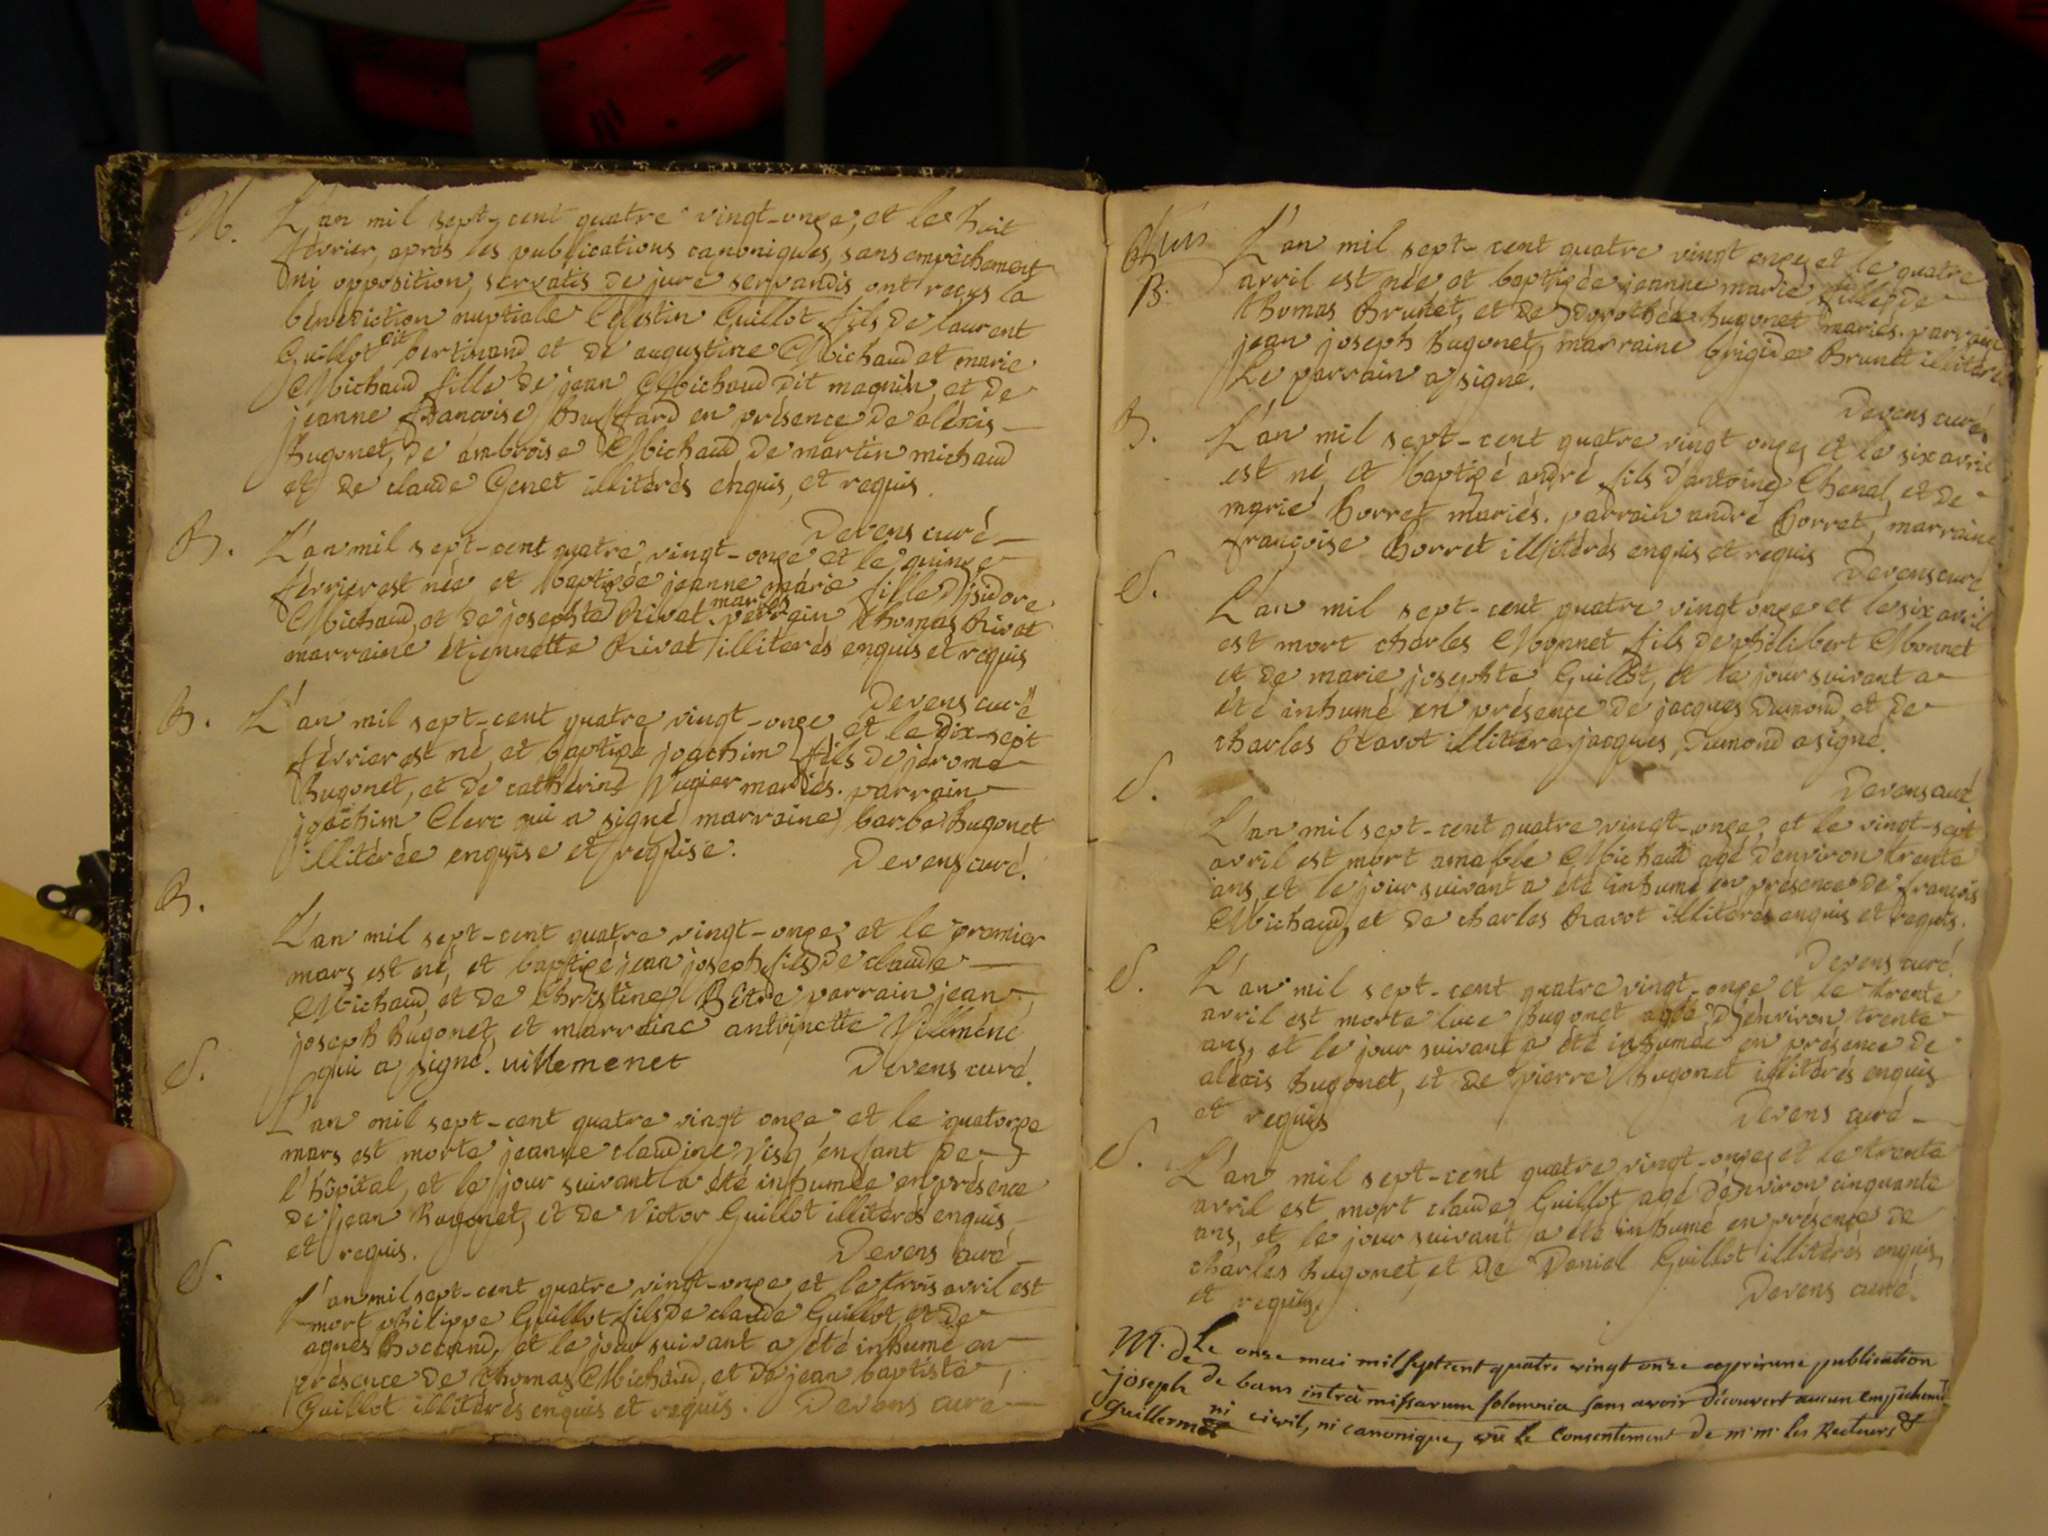 M.
L'an mil sept-cent quatre vingt-onze, et le huit
février, après les publications canoniques, sans empêchement
ni opposition, servatis de jure servandis ont reçus la
bénédiction nuptiale Célestin Guillot fils de laurent
Guillot dit bertinand et de augustine Michaud et marie
Michaud fille de jean Michaud dit magnin, et de
jeanne françoise en présence de aléxis
hugonet, de ambroise Michaud de martin michaud
et de claude Genet illitérés énquis, et requis.
Devens curé
B.
L'an mil sept-cent quatre vingt-onze et le quinze
février est née et baptizée jeanne marie fille d'isidore
Michaud, et de josephte Rivat mariés. parrain thomas Rivat
marraine étiennette Rivat illiterés enquis et requis
Devens curé
B.
L'an mil sept-cent quatre vingt-onze et le dix-sept
février est né, et baptizé joachim fils de jérome
hugonet, et de catherine mariés. parrain
joachim Clerc qui a signé marraine barbe hugonet
illitérée enquise et requise. Devens curé.
B.
L'an mil sept-cent quatre vingt-onze, et le premier
mars est né, et baptizé jean joseph fils de claude
Michaud, et de Christine parrain jean
joseph hugonet, et marraine antoinette Villemené
qui a signé. villemenet Devens curé.
S.
L'an mil sept-cent quatre vingt onze et le quatorze
mars est morte jeanne claudine enfant de
l'hôpital, et le jour suivant a été inhumée en présence
de jean hugonet, et de Victor Guillot illitérés enquis
et requis. Devens curé
S.
L'an mil sept-cent quatre vingt-onze, et le trois avril est
mort philippe Guillot fils de claude Guillot, et de
agnes et le jour suivant a été inhumé en
présence de thomas Michaud, et de jean baptiste
Guillot illitérés enquis et requis. Devens curé
B.
L'an mil sept-cent quatre vingt onze, et le quatre
avril est née et baptizée jeanne marie fille de
thomas Brunet, et de dorothée hugonet mariés. parrain
jean joseph hugonet, marraine brigide Brunet
Le parrain a signé.
Devens curé
B.
L'an mil sept-cent quatre vingt onze, et le six avril
est né, et baptizé andré fils d'antoine Chenal, et de
marie borret mariés. parrain andré borret, marraine
françoise borret illitérés enquis et requis
Devens curé
S.
L'an mil sept-cent quatre vingt onze et le six avril
est mort charles Monnet fils de philibert Monnet
et de marie josephte Guillot, et le jour suivant a
été inhumé en présence de jacques Dumond, et de
charles Ravot illitéré jacques Dumond a signé.
Devens curé.
S.
L'an mil sept-cent quatre vingt-onze, et le vingt-sept
avril est mort amable Michaud agé d'environ trente
ans, et le jour suivant a été inhumé en présence de françois
Michaud, et de charles Ravot illitérés enquis et requis.
Devens curé.
S.
L'an mil sept-cent quatre vingt-onze et le trente
avril est morte luce hugonet agée d'environ trente
ans, et le jour suivant a été inhumée en présence de
aléxis hugonet, et de pierre hugonet illitérés enquis
et requis Devens curé
S.
L'an mil sept-cent quatre vingt-onze, et le trente
avril est mort claude Guillot agé d'environ cinquante
ans, et le jour suivant a été inhumé en présence de
charles hugonet, et de Daniel Guillot illitérés enquis,
et requis. Devens curé.
M. de
joseph
guillermet
Le onze mai mil sept cent quatre vingt onze publication
de bans intrà missarum solemnia sans avoir découvert aucun empêchement
ni civil, ni canonique, vû le consentement de mm. les Recteurs &